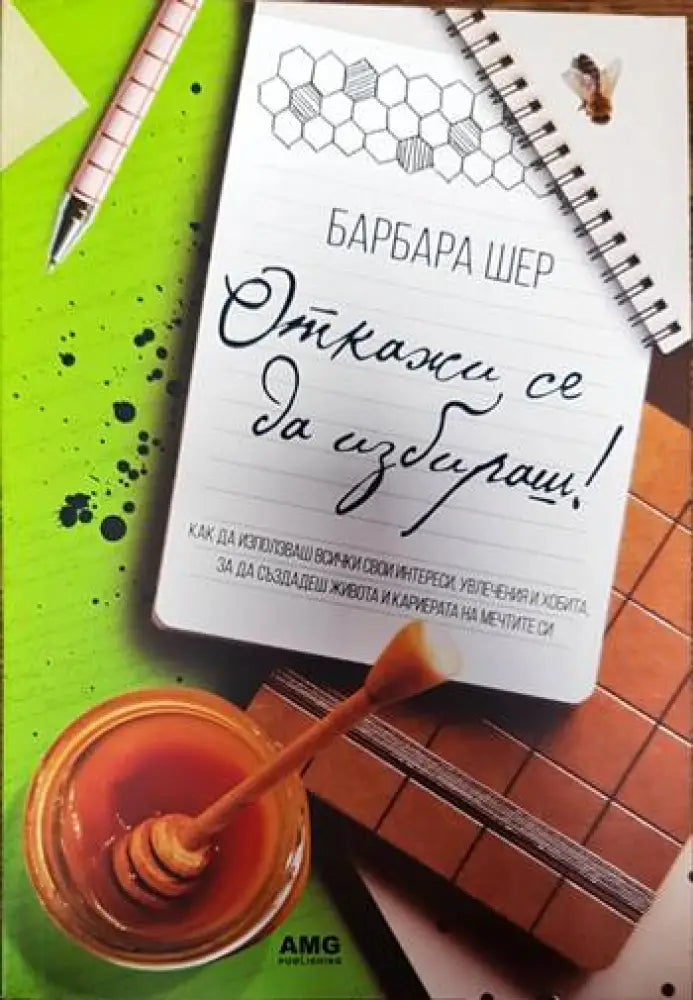 БАРБАРА ШЕР
Откажи се
да избираш!
КАК ДА ИЗПОЛЗВАШ ВСИЧКИ СВОИ ИНТЕРЕСИ, УВЛЕЧЕНИЯ И ХОБИТА,
ЗА ДА СЪЗДАДЕШ ЖИВОТА И КАРИЕРАТА НА МЕЧТИТЕ СИ
AMG
PUBLISHING